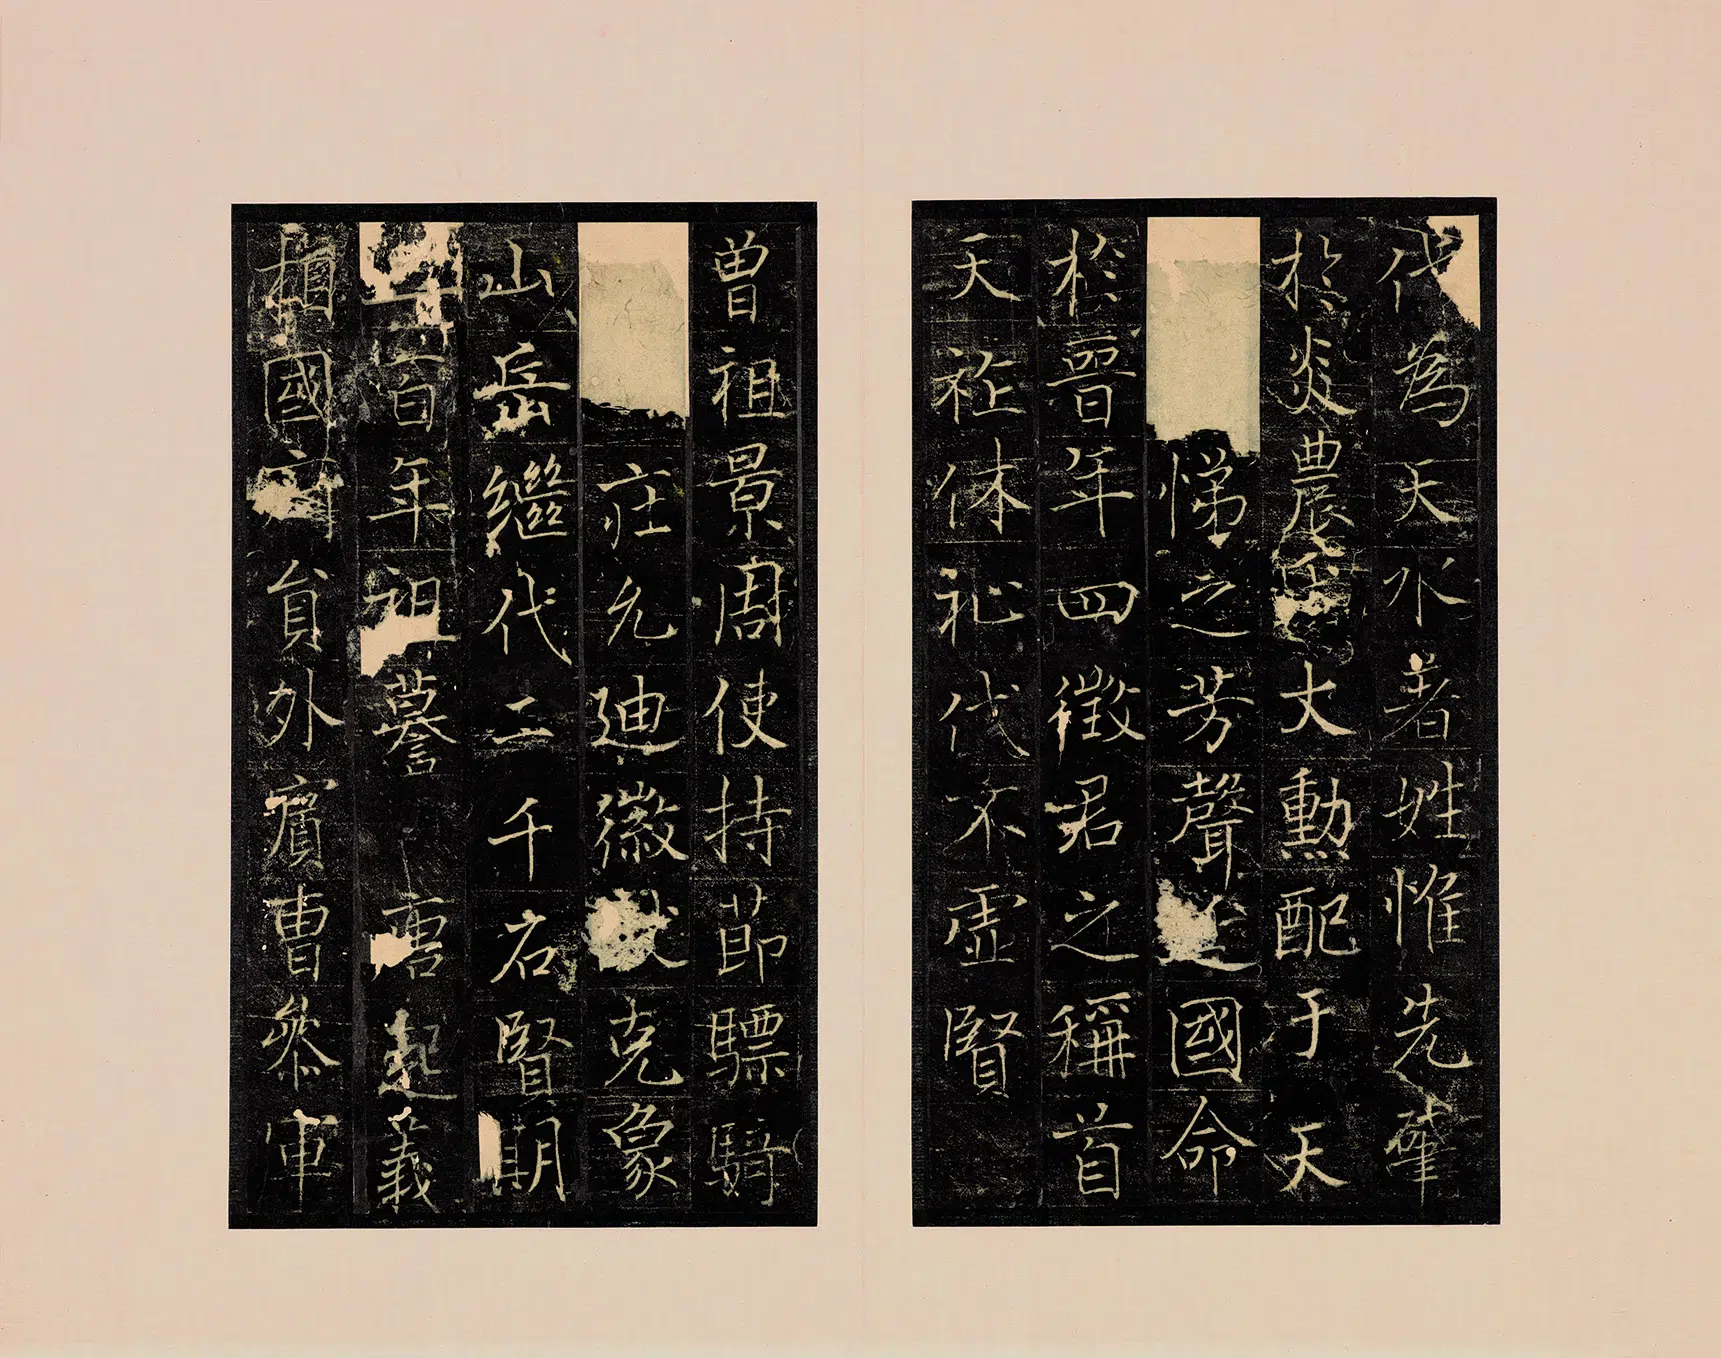 代為天水著姓惟先肇
於炎農岳大勳配于天
悌之芳聲之國命
於晉年四徵君之稱首
天祚休祉代不虛賢
曾祖景周使持節驃騎
莊允迪徽猷克象
山岳繼代二千石賢明
百年祖謩唐起義
相國府倉外兵曹參軍